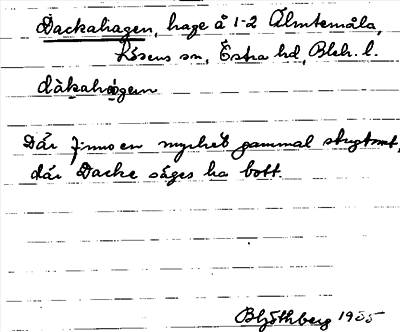 Dackahagen, hage å 1-2 Älmtemåla,
Lösens sn, Östra hd, Blek. l.
dàkahàgen
Där finns en mycket gammal stugtomt,
där Dacke säges ha bott.
B Ljöthberg 1935